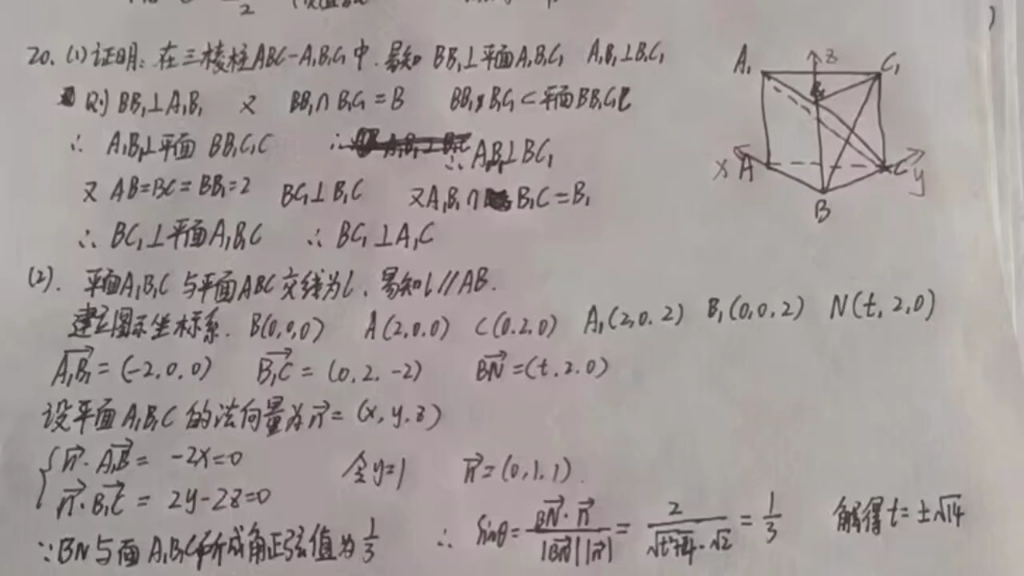 20. (1) 证明: 在三棱柱ABC-A₁B₁C₁中. 易知 BB₁⊥平面A₁B₁C₁ A₁B₁⊥B₁C₁
则 BB₁⊥A₁B₁ 又 BB₁∩B₁C₁=B BB₁,B₁C₁⊂平面BB₁C₁C
∴ A₁B₁⊥平面 BB₁C₁C ∴ A₁B₁⊥BC₁
又 AB=BC=BB₁=2 BC₁⊥B₁C 又A₁B₁∩B₁C=B₁
∴ BC₁⊥平面A₁B₁C ∴ BC₁⊥A₁C
(2). 平面A₁B₁C 与平面ABC 交线为l. 易知l∥AB.
建立图示坐标系. B(0,0,0) A(2,0,0) C(0,2,0) A₁(2,0,2) B₁(0,0,2) N(t,2,0)
A₁B₁=(-2,0,0) B₁C=(0,2,-2) BN=(t,2,0)
设平面A₁B₁C的法向量为n=(x,y,z)
n·A₁B₁= -2x=0
n·B₁C= 2y-2z=0
令y=1 n=(0,1,1)
∵BN与面A₁B₁C所成角正弦值为1/3 ∴ sinθ= BN·n/|BN||n| = 2/√t²+4·√2 = 1/3 解得t=±√14
A₁
z
C₁
B₁
x
A
C
y
B